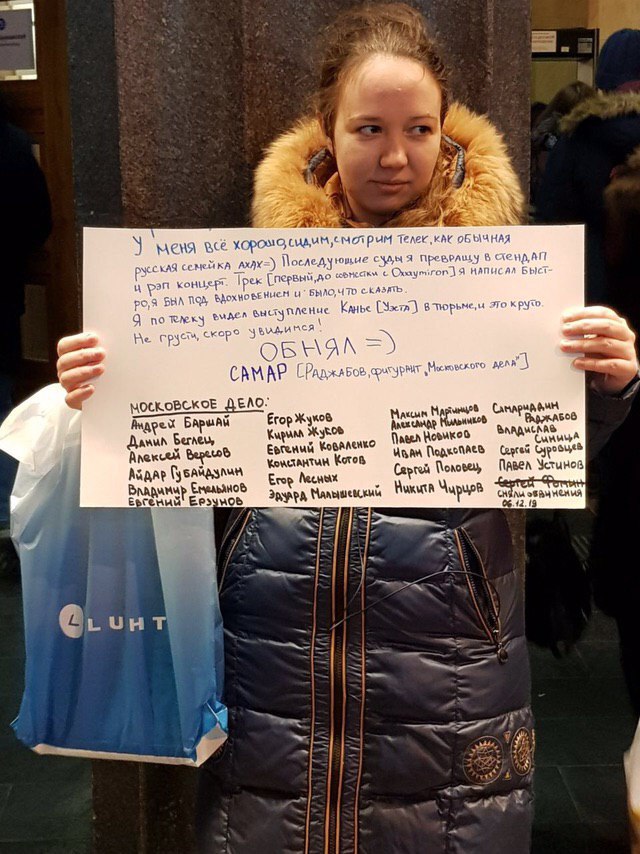 У меня всё хорошо, сидим, смотрим телек, как обычная
русская семейка ахах=) Последующие суды я превращу в стендап
и рэп концерт. Трек [первый, до совместки с Oxxxymiron] я написал быст-
ро, я был под вдохновением и было, что сказать.
Я по телеку видел выступление Канье [Уэста] в тюрьме, и это круто.
Не грусти, скоро увидимся!
ОБНЯЛ =)
САМАР [РАДЖАБОВ, фигурант „Московского дела"]
МОСКОВСКОЕ ДЕЛО:
Андрей Баршай
Данил Беглец
Алексей Вересов
Айдар Губайдулин
Владимир Емельянов
Евгений Ерзунов
Егор Жуков
Кирилл Жуков
Евгений Коваленко
Константин Котов
Егор Лесных
Эдуард Малышевский
Максим Мартинцов
Александр Мыльников
Павел Новиков
Иван Подкопаев
Сергей Половец
Никита Чирцов
Самариддин
Раджабов
Владислав
Синица
Сергей Суровцев
Павел Устинов
Сергей Фомин
сняли обвинения
06.12.19
LUHTA